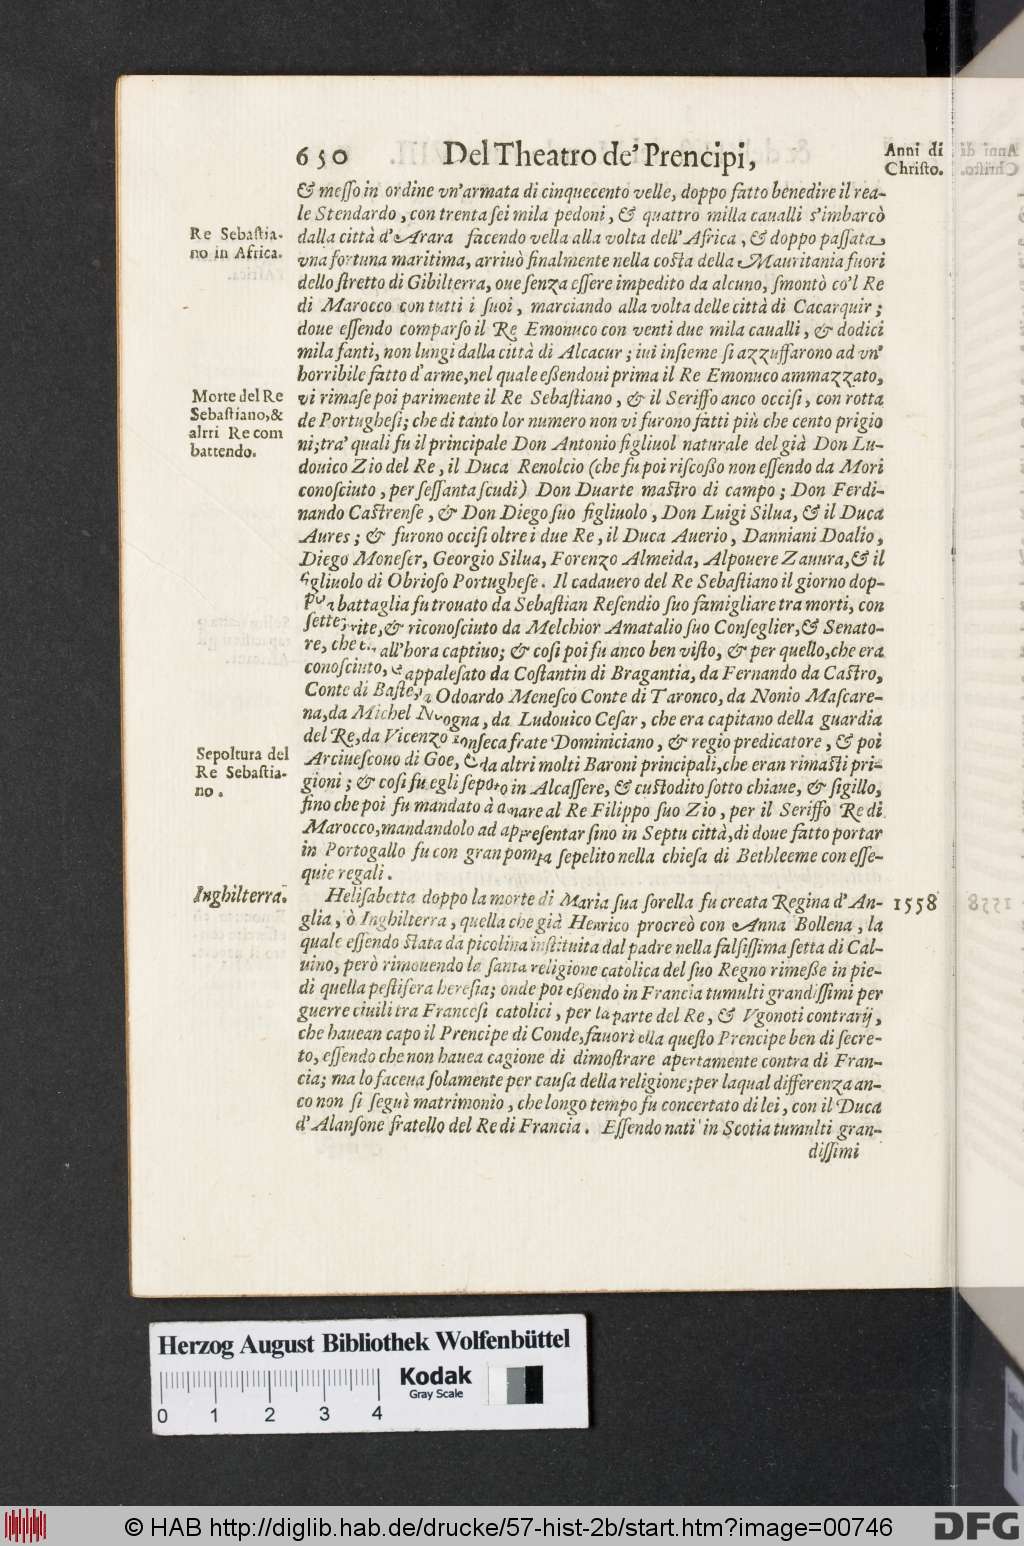 650 Del Theatro de' Prencipi, Anni di
Christo.
& messo in ordine vn'armata di cinquecento velle, doppo fatto benedire il rea-
le Stendardo, con trenta sei mila pedoni, & quattro milla caualli s'imbarcò
Re Sebastia-
no in Africa.
dalla città d'Arara facendo vella alla volta dell'Africa, & doppo passata
vna fortuna maritima, arriuò finalmente nella costa della Mauritania fuori
dello stretto di Gibilterra, oue senza essere impedito da alcuno, smontò co'l Re
di Marocco con tutti i suoi, marciando alla volta delle città di Cacarquir;
doue essendo comparso il Re Emonuco con venti due mila caualli, & dodici
mila fanti, non lungi dalla città di Alcacur; iui insieme si azzuffarono ad vn'
horribile fatto d'arme, nel quale eßendoui prima il Re Emonuco ammazzato,
Morte del Re
Sebastiano, &
altri Re com
battendo.
vi rimase poi parimente il Re Sebastiano, & il Seriffo anco occisi, con rotta
de Portughesi; che di tanto lor numero non vi furono fatti più che cento prigio
ni; tra' quali fu il principale Don Antonio figliuol naturale del già Don Lu-
douico Zio del Re, il Duca Renolcio (che fu poi riscoßo non essendo da Mori
conosciuto, per sessanta scudi) Don Duarte mastro di campo; Don Ferdi-
nando Castrense, & Don Diego suo figliuolo, Don Luigi Silua, & il Duca
Aures; & furono occisi oltre i due Re, il Duca Auerio, Danniani Doalio,
Diego Moneser, Georgio Silua, Forenzo Almeida, Alpouere Zauura, & il
figliuolo di Obrioso Portughese. Il cadauero del Re Sebastiano il giorno dop-
battaglia fu trouato da Sebastian Resendio suo famigliare tra morti, con
sette & riconosciuto da Melchior Amatalio suo Conseglier, & Senato-
re, che all'hora captiuo; & cosi poi fu anco ben visto, & per quello, che era
conosciuto, appalesato da Costantin di Bragantia, da Fernando da Castro,
Conte di Odoardo Menesco Conte di Taronco, da Nonio Mascare-
na, da Michel da Ludouico Cesar, che era capitano della guardia
del Re, da Vicenzo frate Dominiciano, & regio predicatore, & poi
Sepoltura del
Re Sebastia-
no.
Arciuescouo di Goe, & da altri molti Baroni principali, che eran rimasti pri-
gioni; & cosi fu egli sepolto in Alcassere, & custodito sotto chiaue, & sigillo,
fino che poi fu mandato à donare al Re Filippo suo Zio, per il Seriffo Re di
Marocco, mandandolo ad appresentar sino in Septu città, di doue fatto portar
in Portogallo fu con gran pompa sepelito nella chiesa di Bethleeme con esse-
quie regali.
Inghilterra.
Helisabetta doppo la morte di Maria sua sorella fu creata Regina d'An- 1558
glia, ò Inghilterra, quella che già Henrico procreò con Anna Bollena, la
quale essendo stata da picolina instituita dal padre nella falsissima setta di Cal-
uino, però rimouendo la santa religione catolica del suo Regno rimeße in pie-
di quella pestifera heresia; onde poi eßendo in Francia tumulti grandissimi per
guerre ciuili tra Francesi catolici, per la parte del Re, & Vgonoti contrarij,
che hauean capo il Prencipe di Conde, fauori ella questo Prencipe ben di secre-
to, essendo che non hauea cagione di dimostrare apertamente contra di Fran-
cia; ma lo faceua solamente per causa della religione; per la qual differenza an-
co non si seguì matrimonio, che longo tempo fu concertato di lei, con il Duca
d'Alansone fratello del Re di Francia. Essendo nati in Scotia tumulti gran-
dissimi
Herzog August Bibliothek Wolfenbüttel
Kodak
Gray Scale
0 1 2 3 4
© HAB http://diglib.hab.de/drucke/57-hist-2b/start.htm?image=00746
DFG